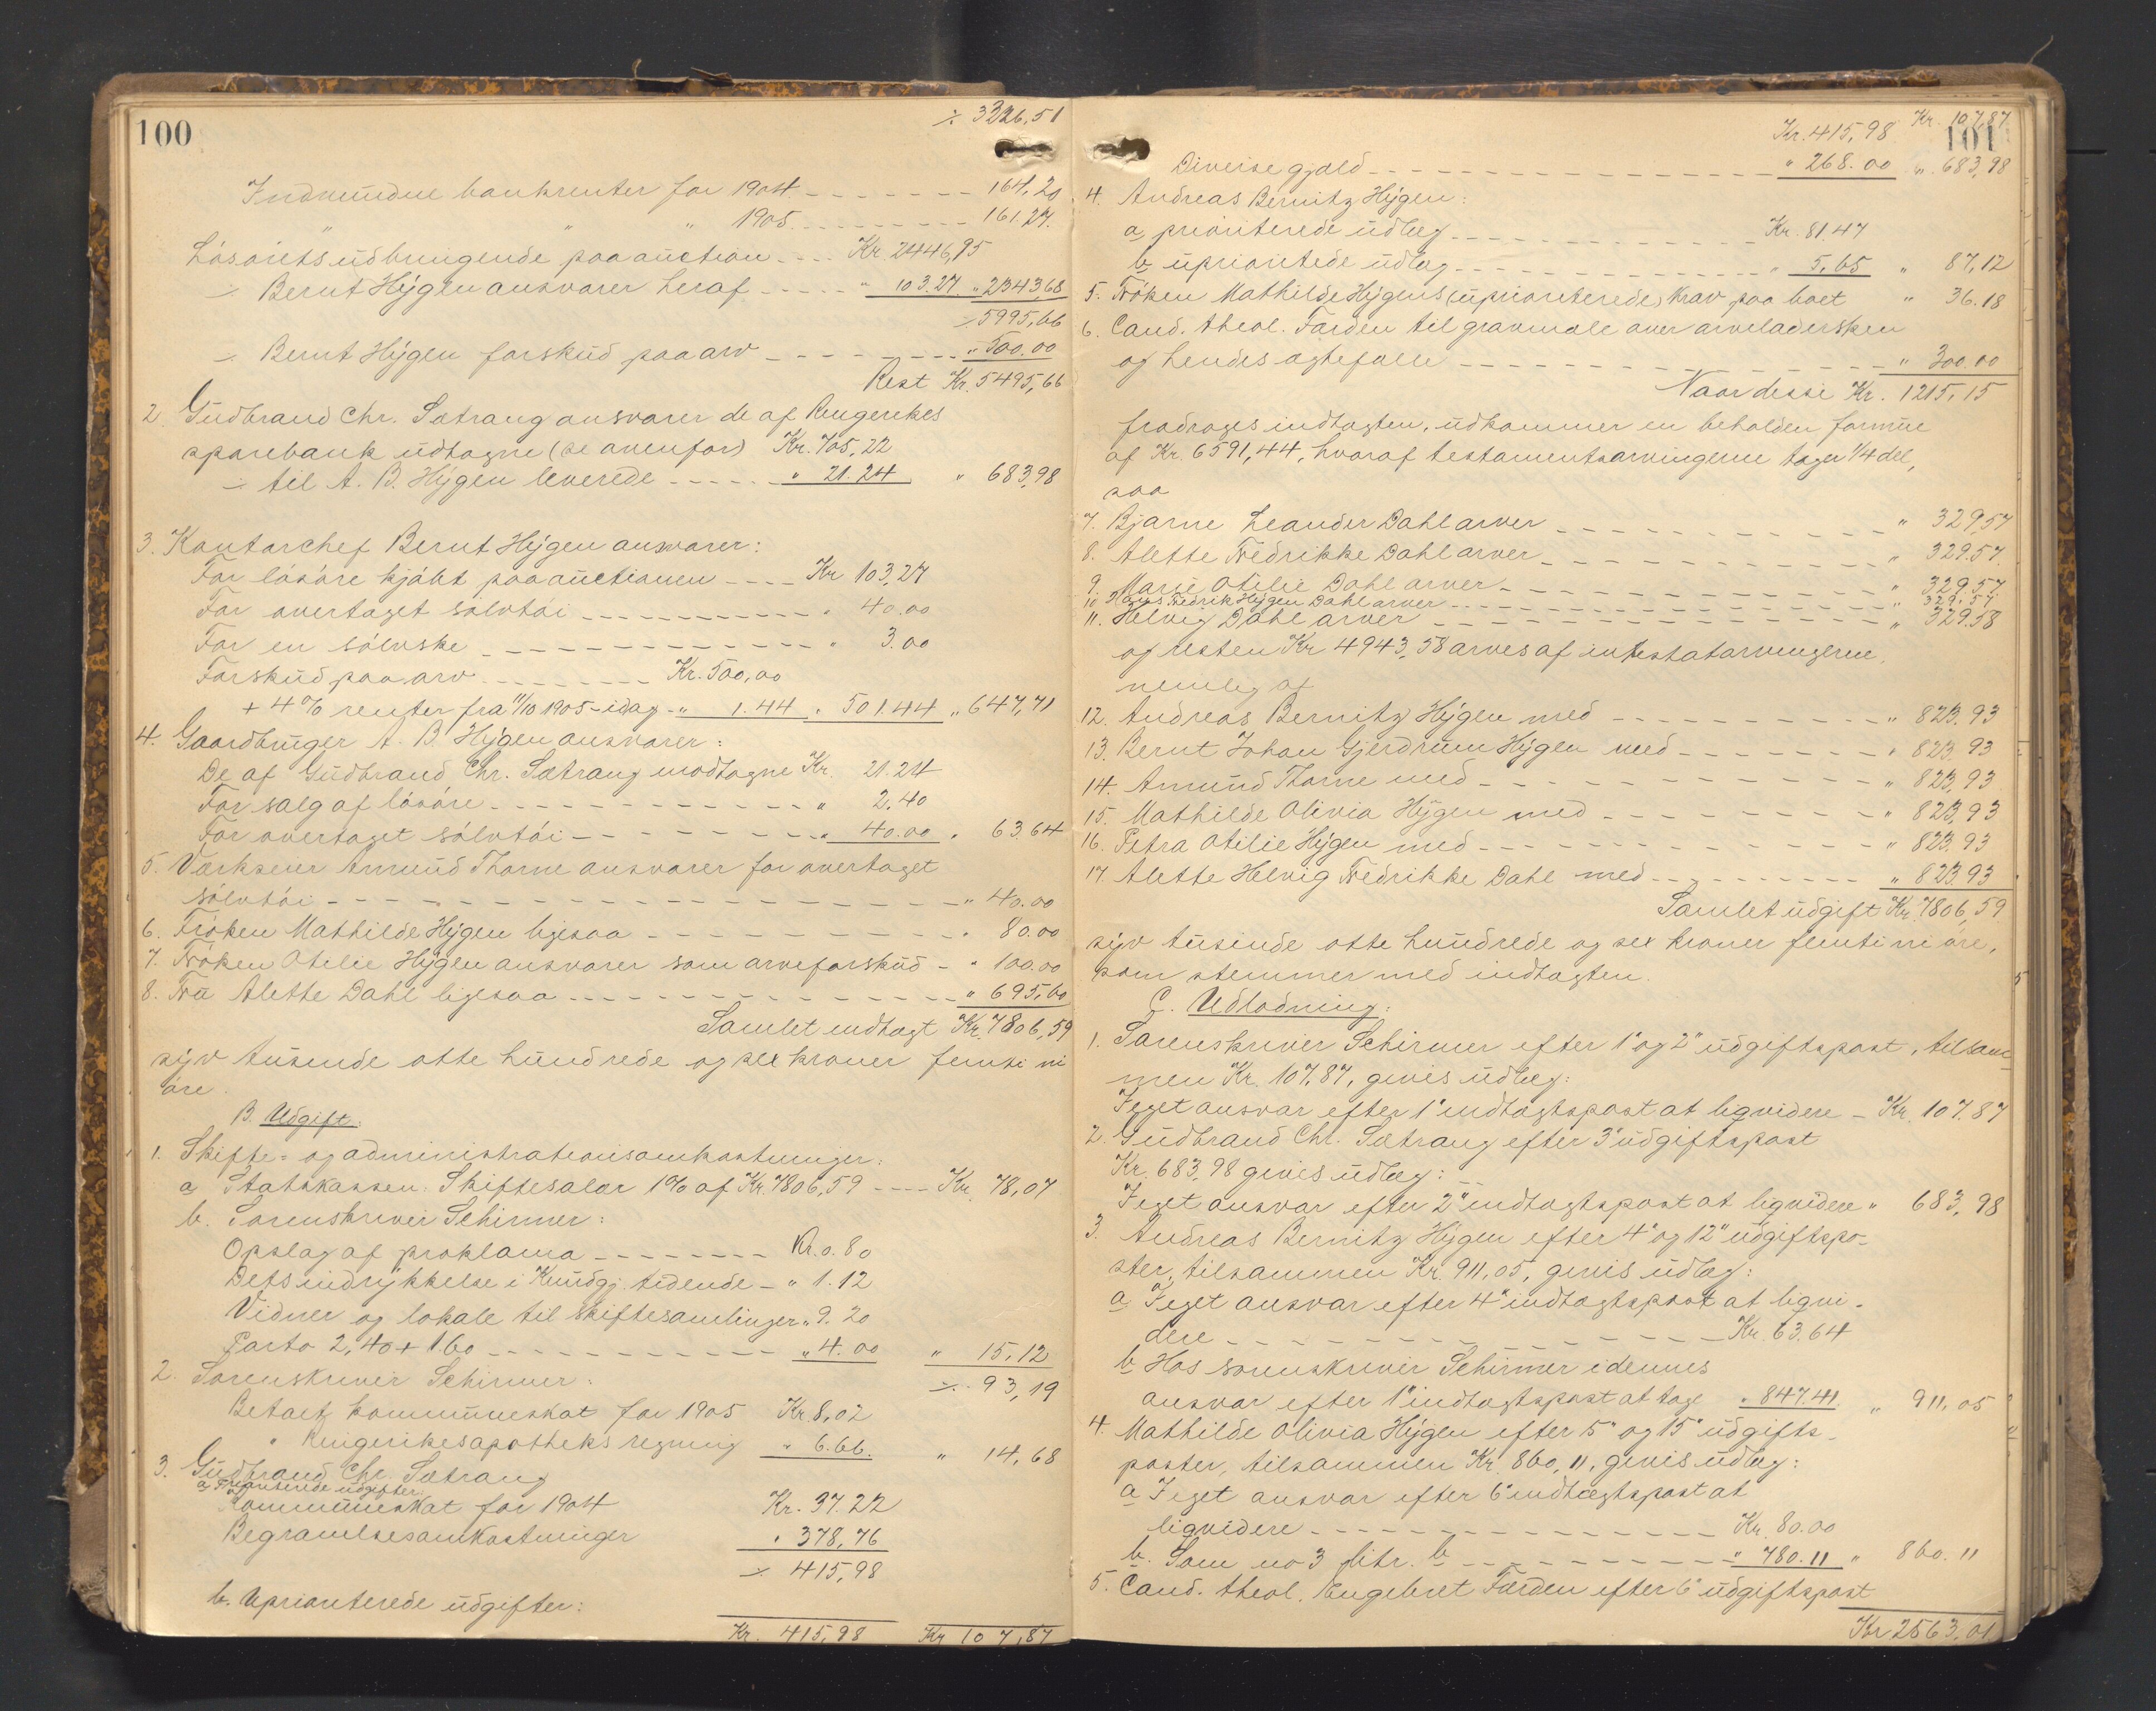 100
÷ 3326,51
Indvundne bankrenter for 1904 - - - - - - - 164,20
" " 1905 - - - - - - - 161.27.
Løsørets udbringende paa auction - - - Kr. 2446,95
÷ Bernt Hÿgen ansvarer heraf - - - - " 103.27 " 2343,68
÷ 5995,66
÷ Bernt Hÿgen forskud paa arv - - - - - - - " 500.00
Rest Kr. 5495,66
2. Gudbrand Chr. Sætrang ansvarer de af Ringerikes
sparebank udtagne (se ovenfor) Kr. 705,22
÷ til A. B. Hÿgen leverede - - - - - " 21.24 " 683,98
3. Kontorchef Bernt Hÿgen ansvarer:
For løsøre kjøbt paa auctionen - - - - Kr 103,27
For overtaget sølvtøi - - - - - - - - - " 40.00
For en sølvske - - - - - - - - - - - " 3.00
Forskud paa arv - - - - - - Kr. 500,00
+ 4% renter fra 11/10 1905 - idag - " 1.44 " 501.44 " 647,71
4. Gaardbruger A. B. Hÿgen ansvarer:
De af Gudbrand Chr. Sætrang modtagne Kr. 21.24
For salg af løsøre - - - - - - - - - - " 2.40
For overtaget sølvtøi - - - - - - - - " 40.00 " 63.64
5. Værkseier Amund Thorne ansvarer for overtaget
sølvtøi - - - - - - - - - - - - - - - - - - " 40.00
6. Frøken Mathilde Hÿgen ligesaa - - - - - - - - - " 80.00
7. Frøken Otilie Hÿgen ansvarer som arveforskud - " 100.00
8. Fru Alette Dahl ligesaa - - - - - - - - - - - " 695,60
Samlet indtægt Kr. 7806,59
syv tusende otte hundrede og sex kroner femti ni
øre.
B. Udgift:
1. Skifte- og administrationsomkostninger:
a Statskassen. Skiftesalær 1% af Kr. 7806,59 - - - - Kr. 78,07
b. Sorenskriver Schirmer:
Opslag af proklama - - - - - - - - Kr. 0.80
Dets indrykkelse i Kundgj. tidende - " 1.12
Vidner og lokale til skiftesamlinger " 9.20
Porto 2,40 + 1.60 - - - - - - - - - - " 4.00 " 15,12
÷ 93,19
2. Sorenskriver Schirmer:
Betalt kommuneskat for 1905 Kr. 8,02
" Ringerikes apotheks regning " 6.66. " 14,68
3. Gudbrand Chr. Sætrang
a Prioriterede udgifter:
Kommuneskat for 1904 Kr. 37.22
Begravelsesomkostninger " 378,76
÷ 415,98
b. Uprioriterede udgifter:
Kr. 415,98 Kr 107,87
101
Kr. 415,98 Kr. 107,87
Diverse gjæld - - - - - - - - - - - - - " 268.00 " 683,98
4. Andreas Bernitz Hÿgen:
a prioriterede udlæg - - - - - - - - Kr. 81.47
b uprioritede udlæg - - - - - - - - - " 5,65 " 87,12
5. Frøken Mathilde Hÿgens (uprioriterede) krav paa boet " 36.18
6. Cand. theol. Færden til gravmæle over arveladersken
og hendes ægtefælle - - - - - - - - - - - - - " 300.00
Naar disse Kr. 1215,15
fradrages indtægten, udkommer en beholden formue
af Kr. 6591,44, hvoraf testamentsarvingerne tager 1/4 del,
saa
7. Bjarne Leander Dahl arver - - - - - - - - - - " 329,57
8. Alette Fredrikke Dahl arver - - - - - - - - - - " 329.57
9. Marie Otilie Dahl arver - - - - - - - - - - - " 329,57
10 Fredrik Hÿgen Dahl arver - - - - - - - - - - - " 329,57
11. Helvig Dahl arver - - - - - - - - - - - - - " 329.58
og resten Kr 4943,58 arves af intestatarvingerne,
nemlig af
12. Andreas Bernitz Hÿgen med - - - - - - - - - " 823.93
13. Bernt Johan Gjerdrum Hÿgen med - - - - - - - " 823.93
14. Amund Thorne med - - - - - - - - - - - - " 823,93
15. Mathilde Olivia Hÿgen med - - - - - - - - - " 823,93
16. Petra Otilie Hÿgen med - - - - - - - - - - - " 823.93
17. Alette Helvig Fredrikke Dahl med - - - - - - - " 823.93
Samlet udgift Kr. 7806,59
syv tusinde otte hundrede og sex kroner femti ni øre,
som stemmer med indtægten.
C. Udlodning:
1. Sorenskriver Schirmer efter 1" og 2" udgiftspost, tilsam-
men Kr. 107,87, gives udlæg:
I eget ansvar efter 1" indtægtspost at liqvidere - Kr. 107.87
2. Gudbrand Chr. Sætrang efter 3" udgiftspost
Kr. 683,98 gives udlæg:
I eget ansvar efter 2" indtægtspost at liqvidere " 683,98
3. Andreas Bernitz Hÿgen efter 4" og 12" udgiftspo-
ster, tilsammen Kr. 911,05, gives udlæg:
a I eget ansvar efter 4" indtægtspost at liqvi-
dere - - - - - - - - - - - - - - - Kr. 63.64
b Hos sorenskriver Schirmer i dennes
ansvar efter 1" indtægtspost at tage " 847.41. " 911,05
4. Mathilde Olivia Hÿgen efter 5" og 15" udgifts-
poster, tilsammen Kr. 860,11, gives udlæg:
a I eget ansvar efter 6" indtægtspost at
liqvidere - - - - - - - - - - - - - Kr. 80.00
b. Som no 3 litr. b - - - - - - - - - " 780.11 " 860.11
5. Cand. theol. Engebret Færden efter 6" udgiftspost
Kr 2563,01